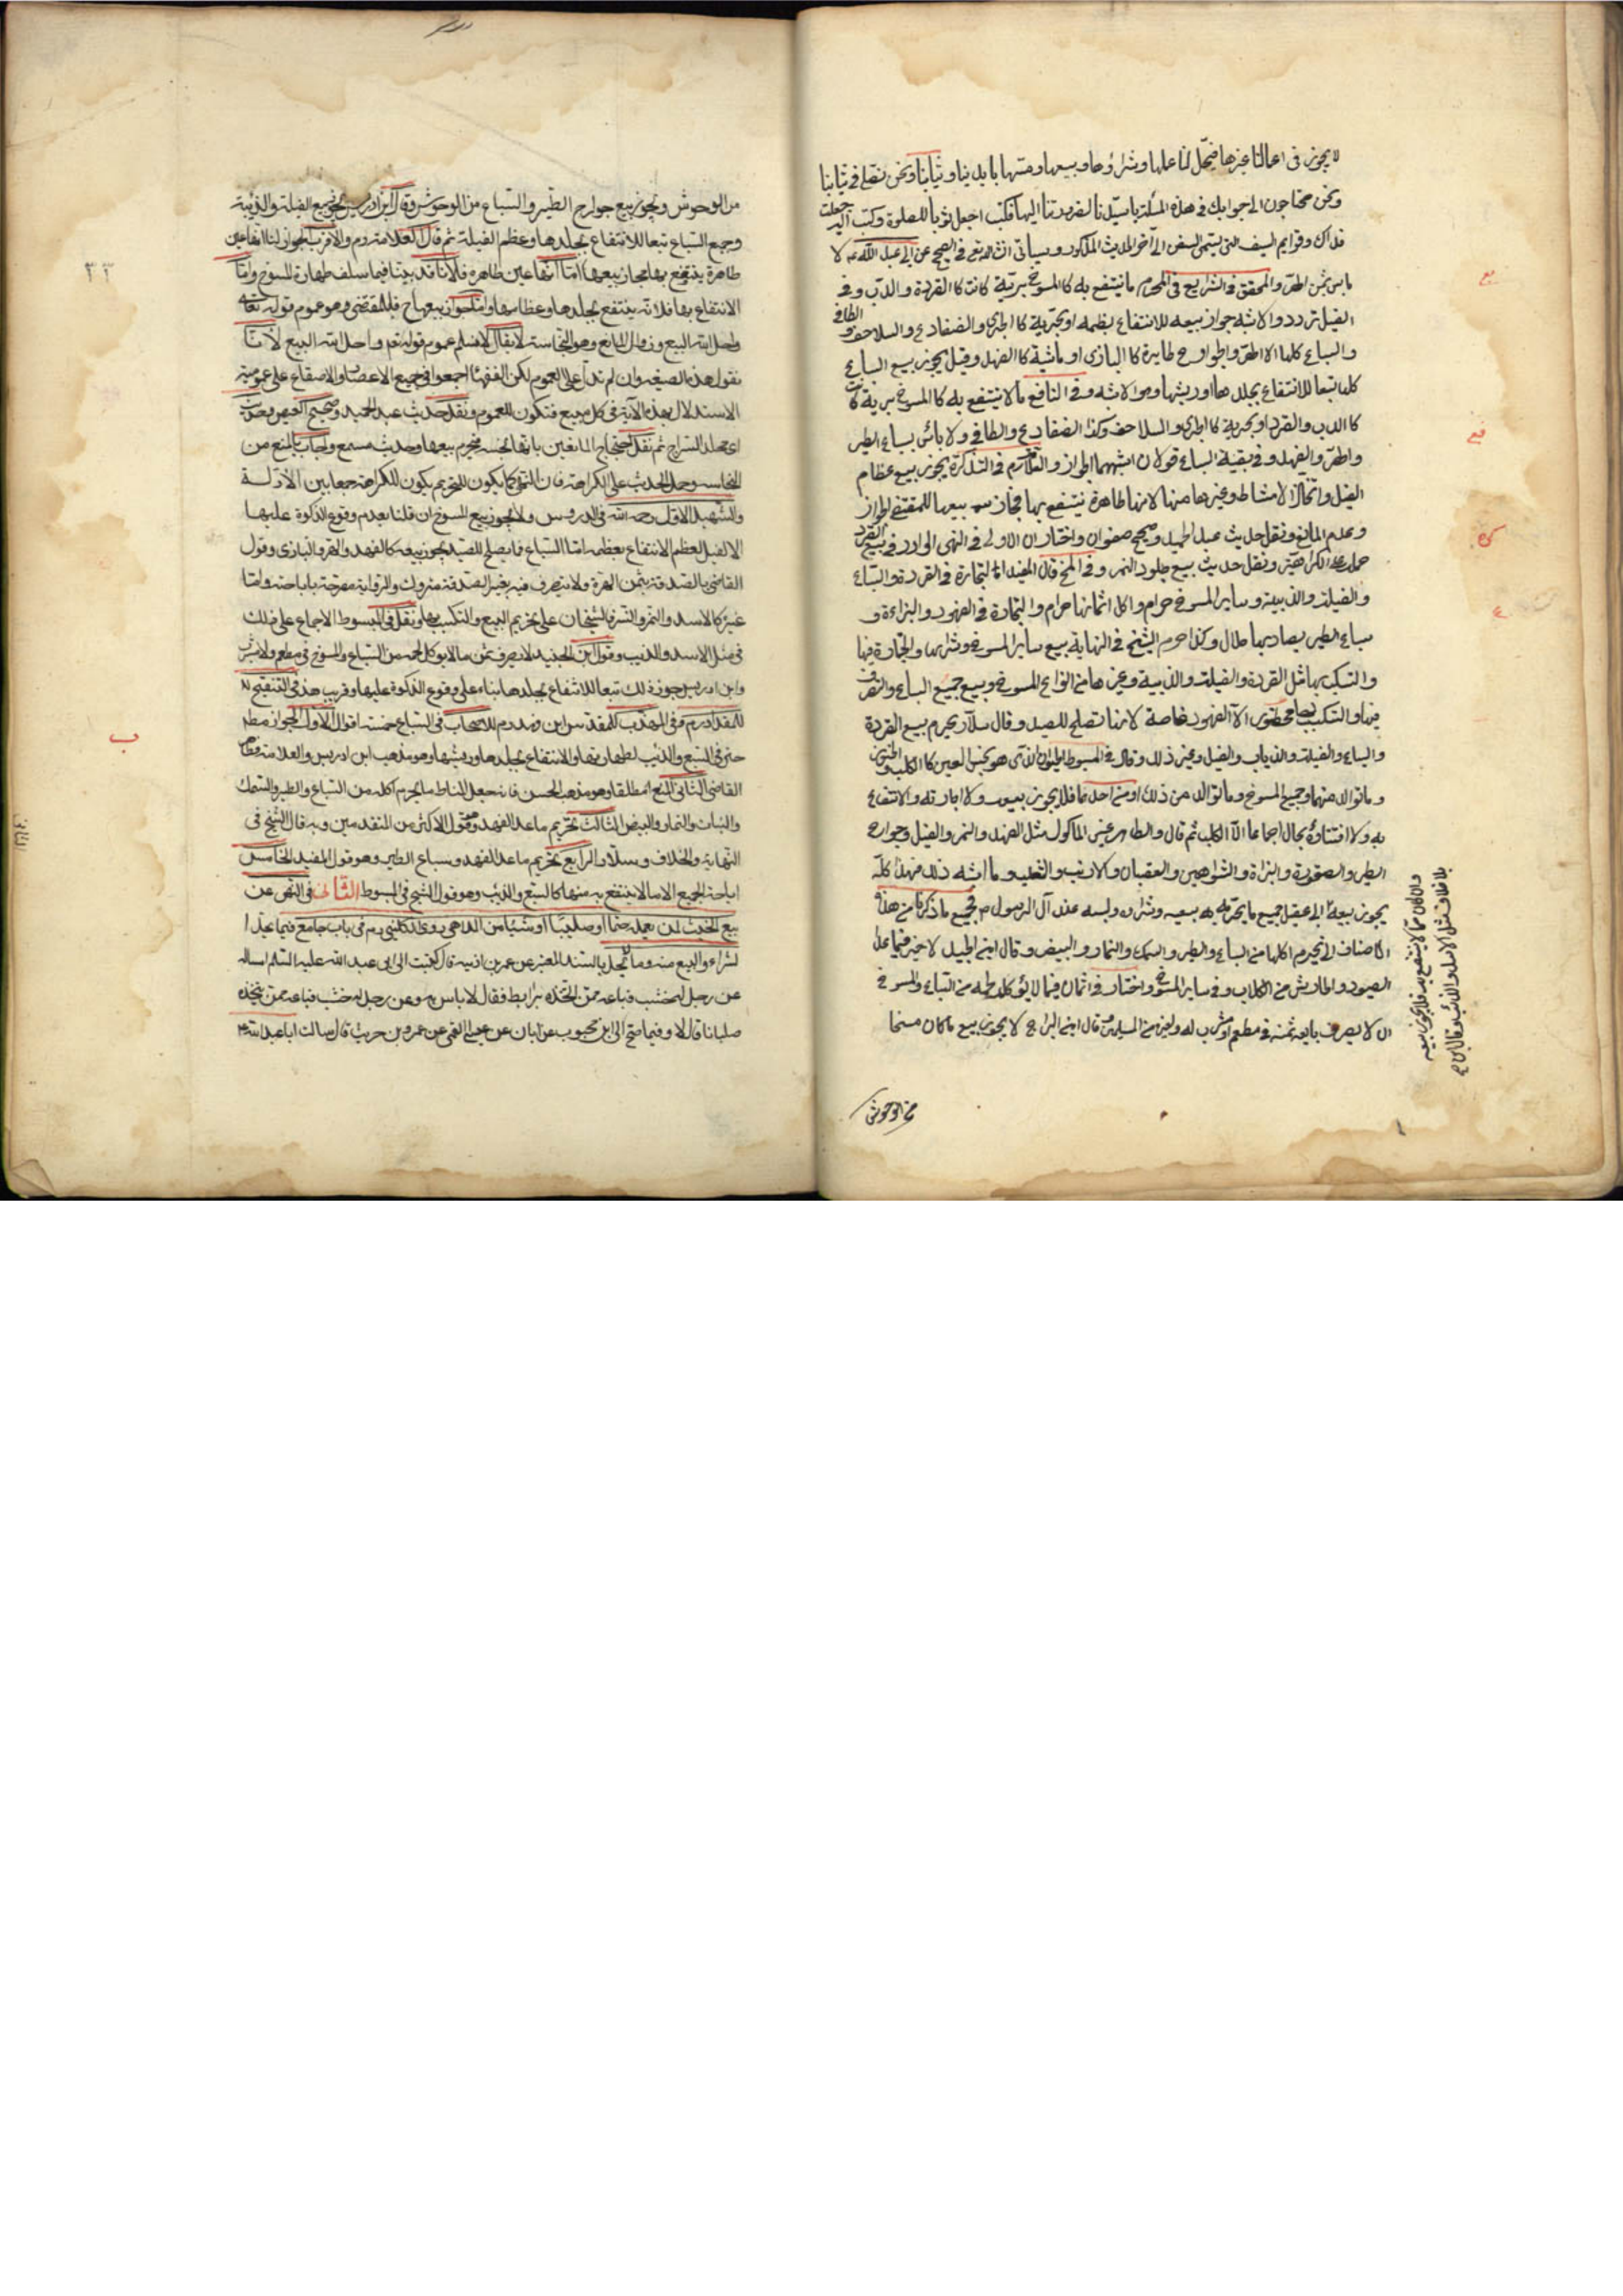 لا يجوز في اعمالنا غيرها فيحل لنا عملها وشراؤها وبيعها ومسها بايدينا وثيابنا ونحن نصلي في ثيابنا
ونحن محتاجون الى جوابك في هذه المسئلة يا سيدنا لضرورتنا اليها فكتب اجعل ثوبا للصلوة وكتب اليه جعلت
فداك وقوايم السيف التي يسمى السفن الى آخر الحديث المذكور وسياتي في الصحيح عن ابي عبد الله ع لا
باس بثمن الهر والمحقق في الشرايع في المحرم ما ينتفع به كالمسوخ برية كانت كالقردة والدب وفي
الفيل تردد والاشبه جواز بيعه للانتفاع بعظمه او بحرية كالجرى والضفادع والسلاحف والطافي
والسباع كلها الا الهر والجوارح طايرة كالبازى او ماشية كالفهد وقيل يجوز بيع السباع
كلها تبعا للانتفاع بجلدها او ريشها وهو الاشبه وفي النافع ما لا ينتفع به كالمسوخ برية كانت
كالدب والقرد او بحرية كالجرى والسلاحف وكذا الضفادع والطافي ولا باس بسباع الطير
والهر والفهد وفي بقية السباع قولان اشبههما الجواز والعلامة رم في التذكرة يجوز بيع عظام
الفيل واتخاذ الامشاط وغيرها منها لانها طاهرة ينتفع بها فجاز بيعها للمقتضي لجواز
وعدم المانع ونقل حديث عبد الحميد وصحيح صفوان واختار ان الاولى في النهى الوارد في بيع القرد
حمله على الكراهية ونقل حديث بيع جلود النمر وفي المخ قال المفيد التجارة في القردة والسباع
والفيلة والذببة وساير المسوخ حرام واكل اثمانها حرام والتجارة في الفهود والبزاة و
سباع الطير يصاد بها حلال وكذا حرم الشيخ في النهاية بيع ساير المسوخ وشراءها والتجارة فيها
والتكسب بها مثل القردة والفيلة والذببة وغيرها من انواع المسوخ وبيع جميع السباع والتصرف
فيها والتكسب بها محظور الا الفهود خاصة لانها تصلح للصيد وقال سلار يحرم بيع القردة
والسباع والفيلة والذباب والفيل وغير ذلك وقال في المبسوط الحيوان الذى هو نجس العين كالكلب والخنزير
وما توالد منهما وجميع المسوخ وما توالد من ذلك او من احدهما فلا يجوز بيعه ولا اجارته والانتفاع
به ولا اقتناؤه بحال اجماعا الا الكلب ثم قال والطاهر غير الماكول مثل الفهد والنمر والفيل وجوارح
الطير والصقورة والبزاة والشواهين والعقبان والارنب والثعلب وما اشبه ذلك فهذا كله
يجوز بيعه ابى عقيل جميع ما يحرم بيعه وشراءه ولبسه عند آل الرسول م جميع ما ذكرنا من هذه
الاصناف التى يحرم اكلها من السباع والطير والسمك والثمار والبيض وقال ابن الجنيد لا خير فيما عدا
الصيود والحارس من الكلاب وفي ساير المسوخ واختار في اثمان فيما لا يؤكل لحمه من السباع والمسوخ
ان لا يصرف بايعه ثمنه في مطعم او مشرب له ولغيره من المسلمين وقال ابن البراج لا يجوز بيع ما كان مسخا
من الوحوش
وان كان مما لا ينتفع به فلا يجوز بيعه
بلا خلاف مثل الاسد والذئب وقال ابن
من الوحوش ويجوز بيع جوارح الطير والسباع من الوحوش وقال ابن ادريس يجوز بيع الفيلة والذببة
وجميع السباع تبعا للانتفاع بجلدها وعظم الفيلة ثم قال العلامة رم والاقرب الجواز لنا انها عين
طاهرة ينتفع بها فجاز بيعها اما انها عين طاهرة فلانا قد بينا فيما سلف طهارة المسوخ واما
الانتفاع بها فلانه ينتفع بجلدها وعظامها واما جواز بيعها ح فللمقتضى وهو عموم قوله تعالى
واحل الله البيع وزوال المانع وهو النجاسة لا يقال لا نسلم عموم قوله تعم واحل الله البيع لانا
نقول هذه الصيغة وان لم تدل على العموم لكن الفقهاء اجمعوا في جميع الاعصار والاصقاع على عمومية
الاستدلال بهذه الآية في كل مبيع فتكون للعموم ونقل حديث عبد الحميد وصحيح العيص وحديث
ابى مخلد السراج ثم نقل احتجاج المانعين بانها نجسة فيحرم بيعها وحديث مسمع واجاب بالمنع من
النجاسة وحمل الحديث على الكراهة فان النهى كما يكون للتحريم يكون للكراهة جمعا بين الادلة
والشهيد الاول رحمه الله في الدروس ولا يجوز بيع المسوخ ان قلنا بعدم وقوع الذكوة عليها
الا الفيل لعظم الانتفاع بعظمه اما السباع فما يصلح للصيد يجوز بيعه كالفهد والهر والبازى وقول
القاضى بالصدقة بثمن الهرة ولا يتصرف فيه بغير الصدقة متروك والرواية مصرحة باباحته واما
غيره كالاسد والنمر والنسر فالشيخان على تحريم البيع والتكسب بها ونقل في المبسوط الاجماع على ذلك
في مثل الاسد والذيب وقول ابن الجنيد لا يصرف ثمن ما لا يوكل لحمه من السباع والمسوخ في مطعم ولا مشرب
وابن ادريس جوز ذلك تبعا للانتفاع بجلدها بناء على وقوع الذكوة عليها وقريب منه في التنقيح
للمقداد رم وفي المهذب للمقدس ابن فهد رم للاصحاب في السباع خمسة اقوال الاول الجواز مطم
حتى في السبع والذيب لطهارتها والانتفاع بجلدها وريشها وهو مذهب ابن ادريس والعلامة وظاهر
القاضى الثانى المنع مطلقا وهو مذهب الحسن فانه جعل المناط ما يحرم اكله من السباع والطير والسمك
والنبات والثمار والبيض الثالث تحريم ما عدا الفهد وهو قول الاكثر من المتقدمين وبه قال الشيخ في
النهاية والخلاف وسلار الرابع تحريم ما عدا الفهد وسباع الطير وهو قول المفيد الخامس
اباحة الجميع الا ما لا ينتفع به منها كالسبع والذيب وهو قول الشيخ في المبسوط الثالث في النهى عن
بيع الخشب لمن يعمله صنما او صليبا او شيئا من الملاهى روى الكلينى رم في باب جامع فيما يحل
الشراء والبيع منه وما لا يحل بالسند المعتبر عن عمر بن اذينة قال كتبت الى ابى عبد الله عليه السلم اساله
عن رجل له خشب فباعه ممن اتخذه برابط فقال لا باس به وعن رجل له خشب فباعه ممن يتخذه
صلبانا قال لا وفيما صح الى ابن محبوب عن ابان عن عيسى القمى عن عمرو بن حريث قال سالت ابا عبد الله ع
٢٣
ب